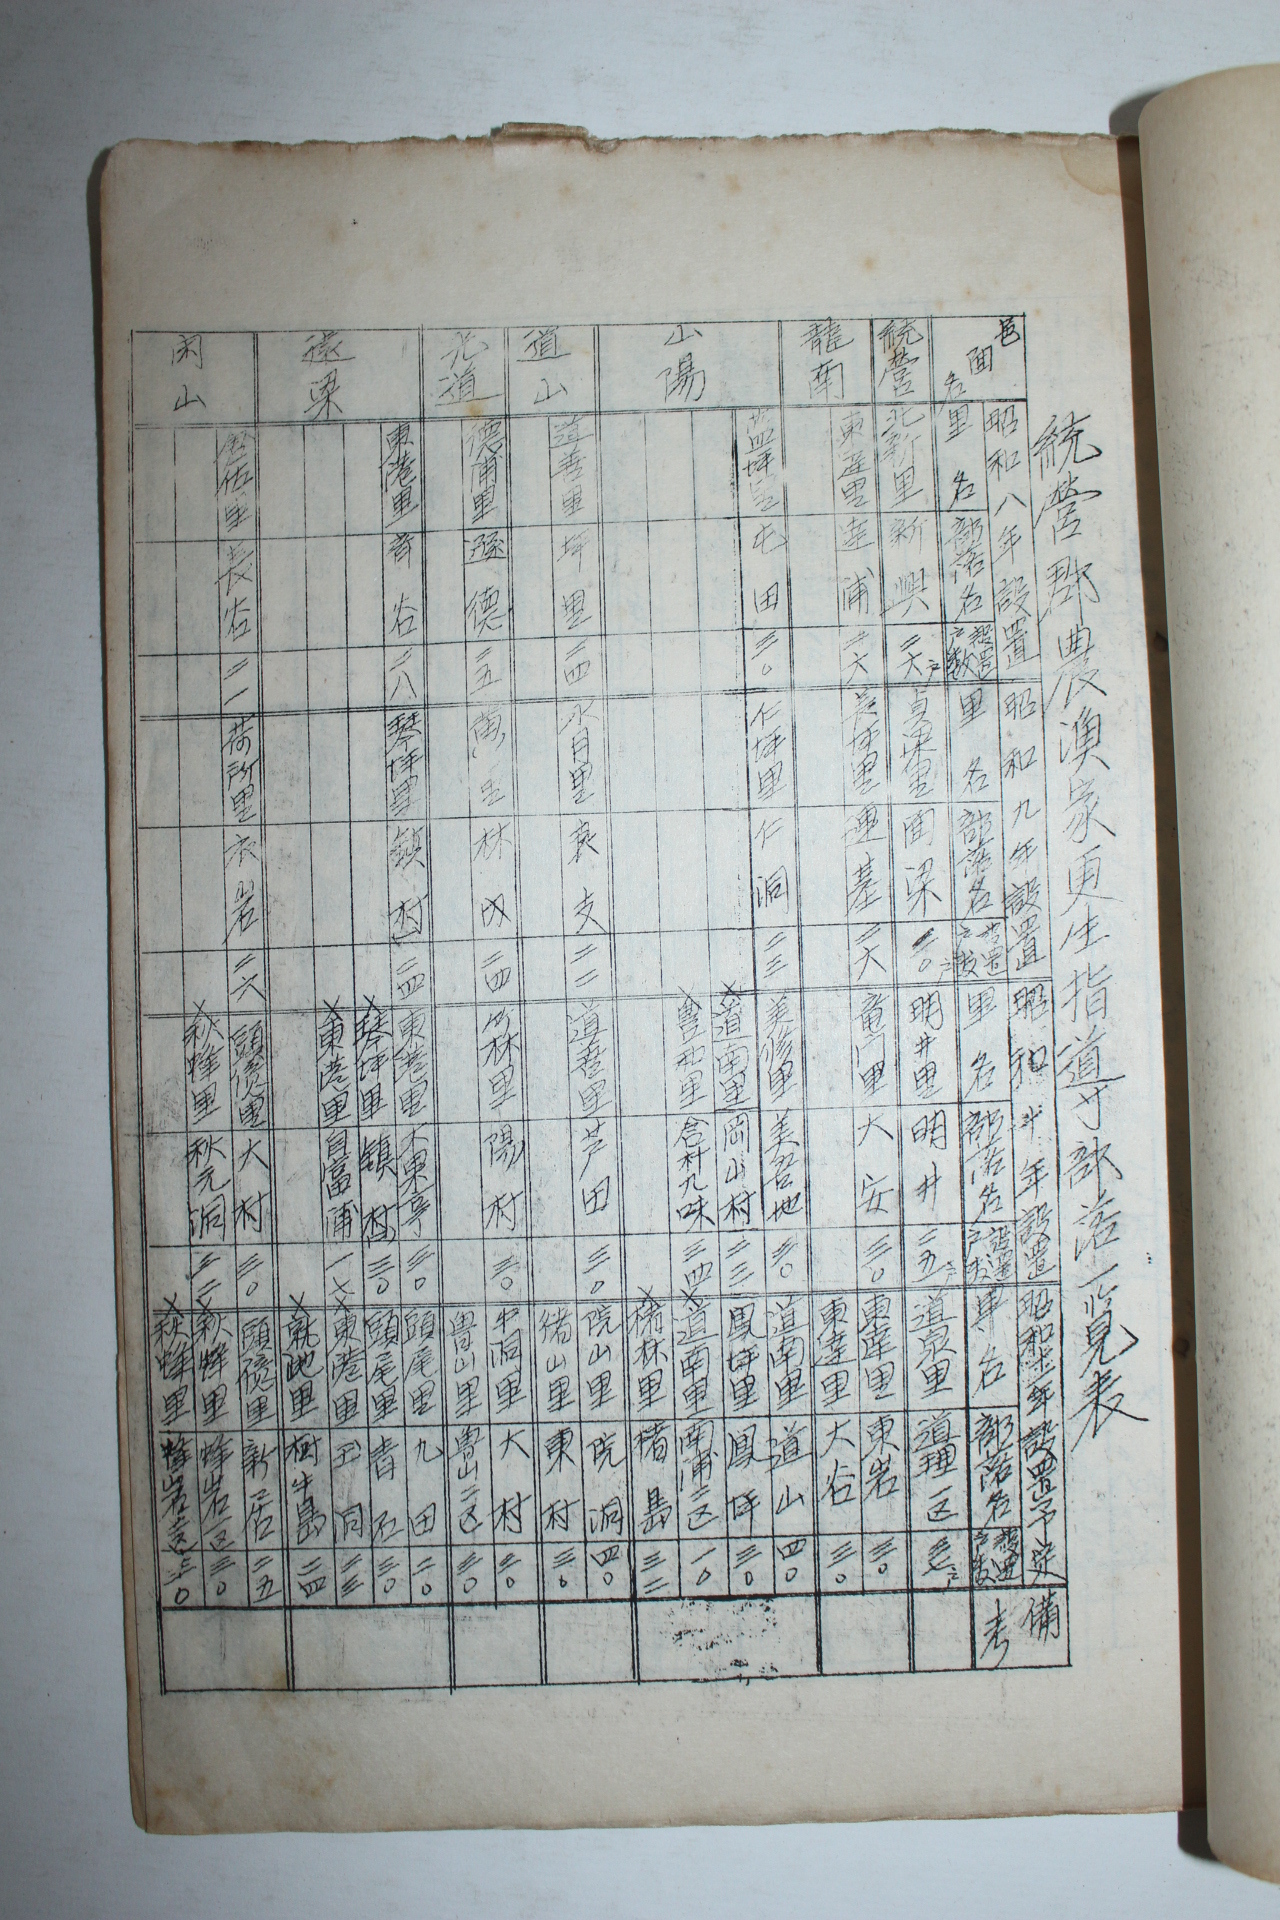 統營郡農漁家更生指導部落一覧表
邑面名
昭和八年設置
里名 部落名 設置戸数
昭和九年設置
里名 部落名 設置戸数
昭和十年設置
里名 部落名 設置戸数
昭和十一年設置予定
里名 部落名 設置戸数
備考
統營
北新里 新興 二六戸
貞梁里 面梁 二〇戸
明井里 明井 二五戸
道泉里 道理一区
龍南
東達里 達浦 二六
長坪里 連基 二六
竜 里 大安 三〇
東達里 東岩 三〇
東達里 大谷 三〇
山陽
坪里 屯田 三〇
仁坪里 仁洞 二三
美修里 美吾地 三〇
道南里 道山 四〇
×道南里 岡山村 二三
鳳坪里 鳳坪 三〇
×豊和里 合村九味 二四
×道南里 南浦二区 一〇
×楮林里 楮島 三二
道山
道善里 坪里 二四
水月里 表支 二二
道善里 芦田 三〇
院山里 院洞 四〇
猪山里 東村 三〇
北道
德浦里 德 二五
里 林内 二四
竹林里 陽村 三〇
牛洞里 大村 三〇
豊山里 豊山二区 三〇
遠梁
東港里 音谷 二八
琴坪里 鎮村 二四
東港里 東亭 三〇
頭尾里 九田 二〇
×琴坪里 鎮村 三〇
頭尾里 青石 三〇
×東港里 自富浦 一七
×東港里 玉洞 三三
× 地里 樹牛島 二四
閑山
里 長谷 二一
荷所里 衣岩 二六
頭億里 大村 三〇
頭億里 新居 二五
×秋蜂里 秋元洞 二二
×秋蜂里 蜂岩一区 三〇
×秋蜂里 蜂岩二区 二〇